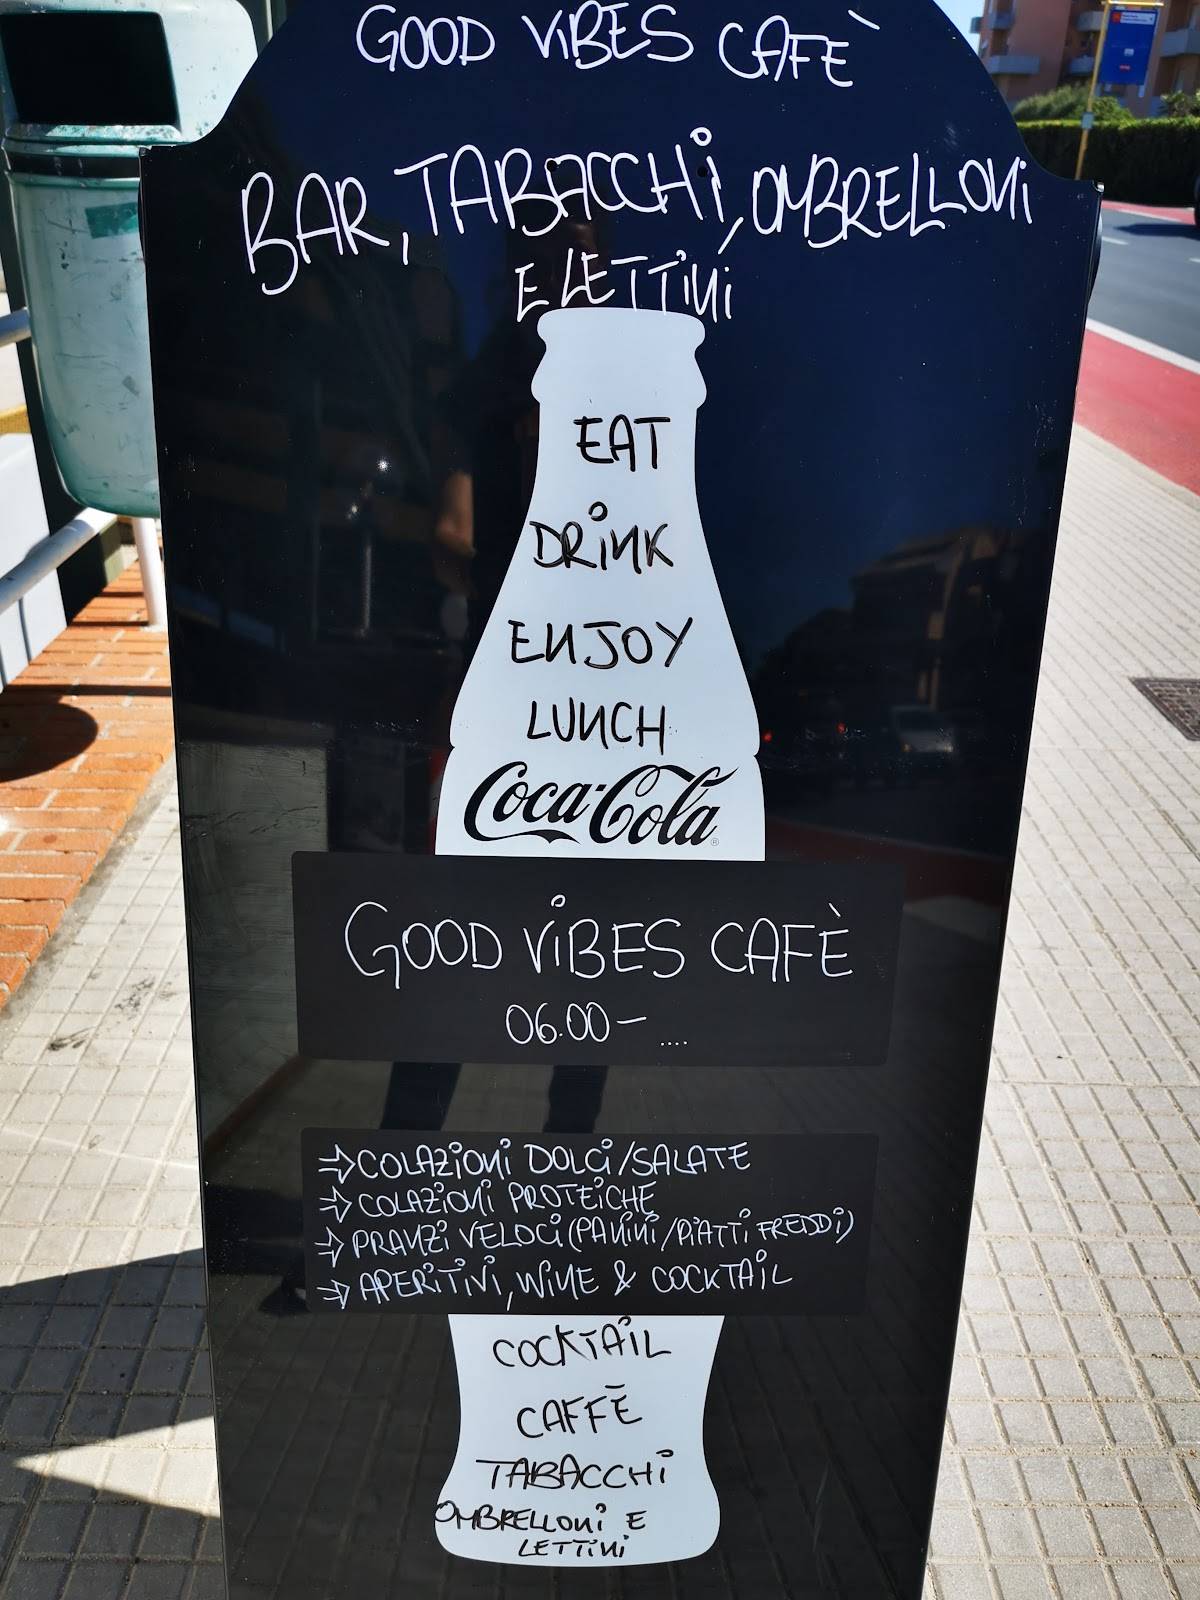 GOOD ViBES CAFÈ
BAR, TABACCHi, OMBRELLONi
E LETTiNi
EAT
DRiNK
ENJOY
LUNCH
Coca-Cola®
GOOD ViBES CAFÈ
06.00- ....
⇒ COLAZiONi DOLCi/SALATE
⇒ COLAZiONi PROTEiCHE
⇒ PRANZi VELOCi (PANiNi/PiATTi FREDDi)
⇒ APERiTiVi, WiNE & COCKTAiL
COCKTAiL
CAFFÈ
TABACCHi
OMBRELLONi E
LETTiNi